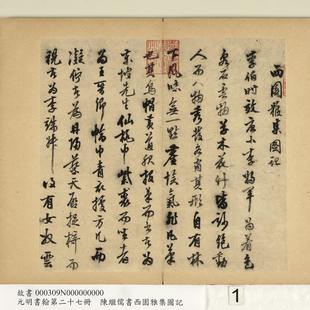 西園雅集圖記
李伯時效唐小李將軍為著色
泉石雲物草木花竹皆妙絕動
人而人物秀發各肖其形自有林
下風味無一點塵埃氣不為凡筆
也其烏帽黃道服捉筆而書者為
東坡先生仙桃巾紫裘而坐者
為王晉卿幅巾青衣據方几而
凝佇者為丹陽蔡天啟捉椅而
視者為李端叔後有女奴雲
故書 000309N000000000
元明書翰第二十七冊 陳繼儒書西園雅集圖記
1